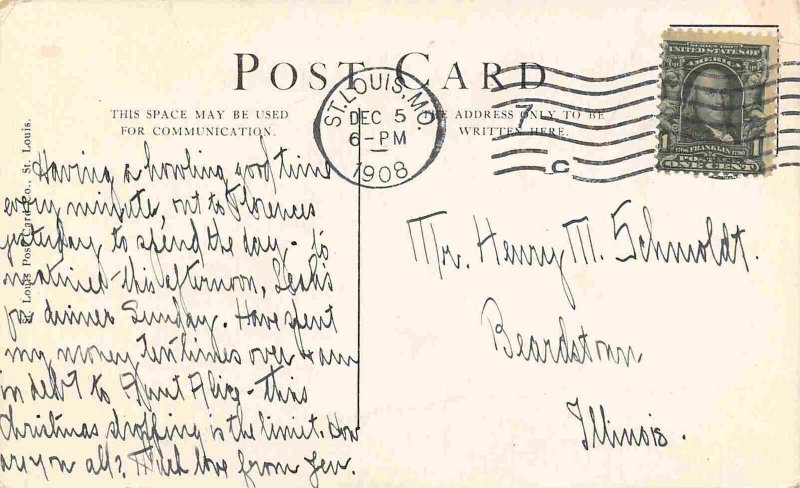 POST CARD
THIS SPACE MAY BE USED
FOR COMMUNICATION.
THE ADDRESS ONLY TO BE
WRITTEN HERE.
ST. LOUIS, MO.
DEC 5
6-PM
1908
7-
C
SERIES 1902
UNITED STATES OF
AMERICA
1
FRANKLIN
1
POSTAGE
ONE CENT
St. Louis Post Card Co., St. Louis.
Having a howling good time
every minute, out to Florences
yesterday to spend the day - to
matinee this afternoon,
for dinner Sunday. Have spent
my money ten times over & am
in debt to Aunt Alice - this
Christmas shopping is the limit. How
are you all? Much love from Jen.
Mr. Henry M. Schmoldt.
Beardstown
Illinois.